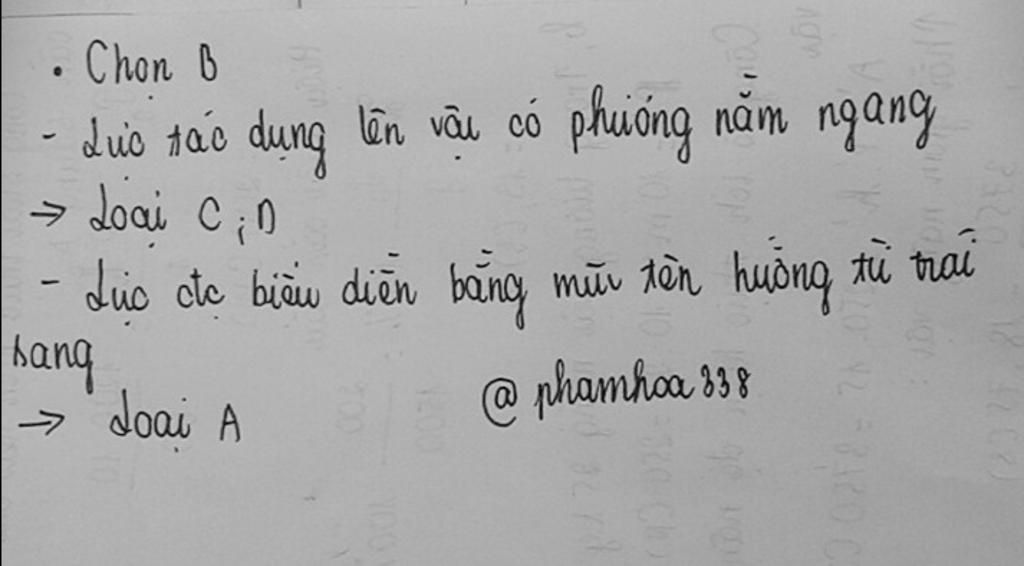 • Chọn B
- Lực tác dụng lên vậu có phương nằm ngang
→ Loại C;D
- Lực đtc biểu diễn bằng mũi tên hướng từ trái
sang
→ Loại A
@phamhoa338